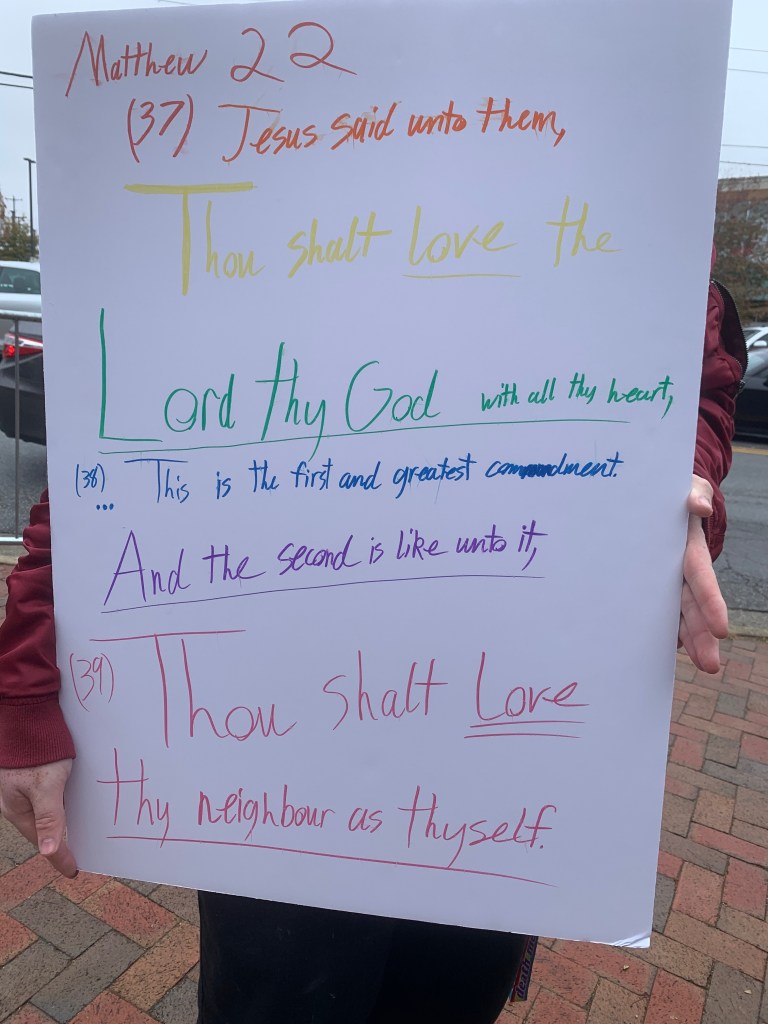 Matthew 22
(37) Jesus said unto them,
Thou shalt love the
Lord thy God with all thy heart,
(38) ... This is the first and greatest commandment.
And the second is like unto it,
(39) Thou shalt Love
thy neighbour as thyself.